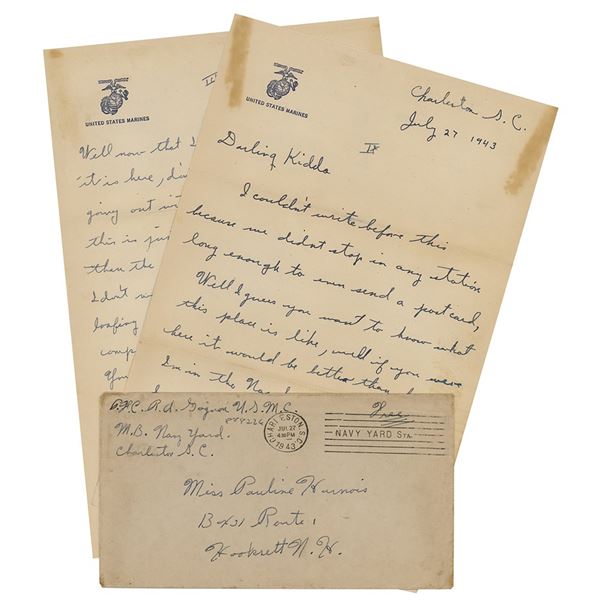 UNITED STATES MARINES
Well now that I
it is here,
going out
this is
than the
I don't
loafing
UNITED STATES MARINES
Charleston S.C.
July 27 1943
Darling Kiddo
I couldn't write before this
because we didnt stop in any station
long enough to even send a postcard,
Well I guess you want to know what
this place is like, well if you were
here it would be better than
I'm in the
P.F.C. R.A. Gagnon U.S.M.C.
M.B. Navy Yard.
Charleston S.C.
CHARLESTON, S.C.
JUL 27
4 30 PM
1943
Free
NAVY YARD STA.
Miss Pauline Harnois
Box 31 Route 1
Hooksett N.H.